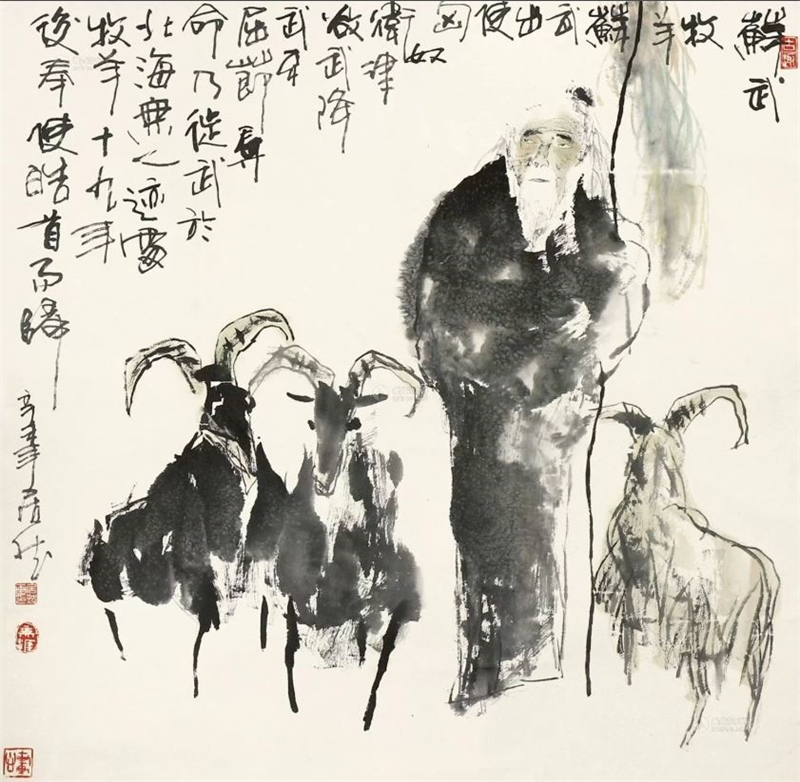 蘇武
牧
羊
蘇
武
出
使
匈
奴
衛律
欲武降
武不
屈節辱
命乃徙武於
北海無人迹處
牧羊十九年
後奉使皓首而歸